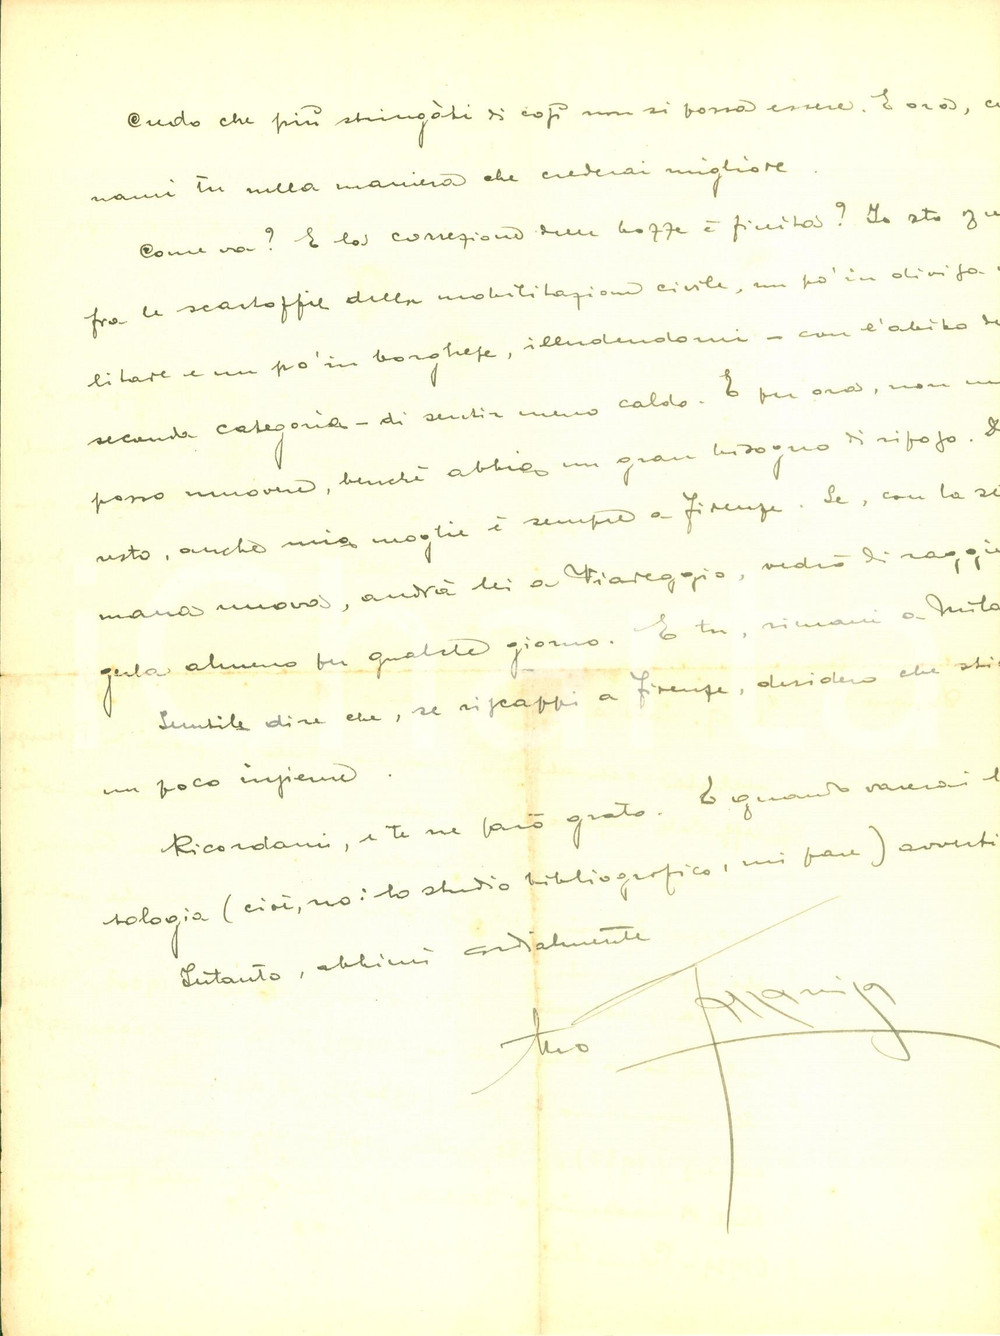 Credo che più stringàti di così non si possa essere. E ora,
nami tu nella maniera che crederai migliore.
Come va? E la correzione delle bozze è finita? Io sto
fra le scartoffie della mobilitazione civile, un po' in divisa
litare e un po' in borghese, illudendomi – con l'abito
seconda categoria – di sentir meno caldo. E per ora, non
posso muovere, benchè abbia un gran bisogno di riposo.
resto, anche mia moglie è sempre a Firenze. Se, con la
mana nuova, andrà lei a Viareggio, vedrò di
gerla almeno per qualche giorno. E tu, rimani a
Inutile dire che, se riscappi a Firenze, desidero che
un poco insieme.
Ricordami, e te ne sarò grato. E quando
tologia (cioè, no: lo studio bibliografico, mi pare)
Intanto, abbimi cordialmente
tuo